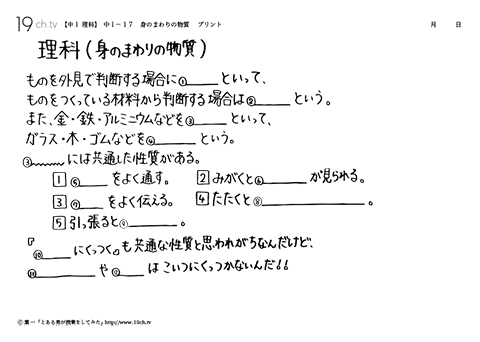 19 ch.tv 【中1 理科】 中1-17 身のまわりの物質 プリント 月 日
理科(身のまわりの物質)
ものを外見で判断する場合に①____といって、
ものをつくっている材料から判断する場合は②____という。
また、金・鉄・アルミニウムなどを③____といって、
ガラス・木・ゴムなどを④____という。
③~~~~には共通した性質がある。
1 ⑤____をよく通す。 2 みがくと⑥____が見られる。
3 ⑦____をよく伝える。 4 たたくと⑧____。
5 引っ張ると⑨____。
『⑩____にくっつく』も共通な性質と思われがちなんだけど、
⑪____や⑫____はこいつにくっつかないんだ!!
© 葉一「とある男が授業をしてみた」http://www.19ch.tv